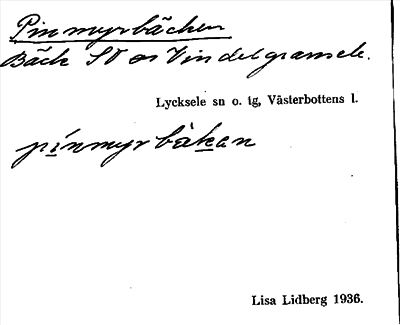 Pinmyrbäcken
Bäck SV om Vindelgransele.
Lycksele sn o. tg, Västerbottens l.
pínmyrbäkan
Lisa Lidberg 1936.